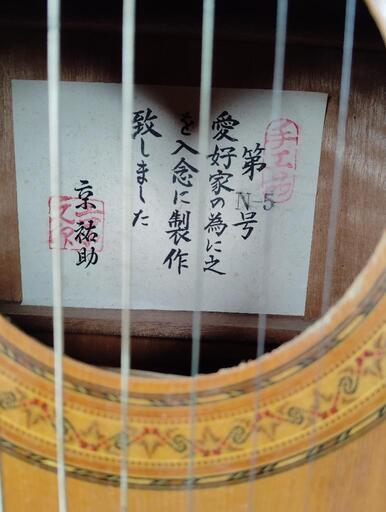 第 N-5 号
愛好家の為に之
を入念に製作
致しました
京祐助
手工芸